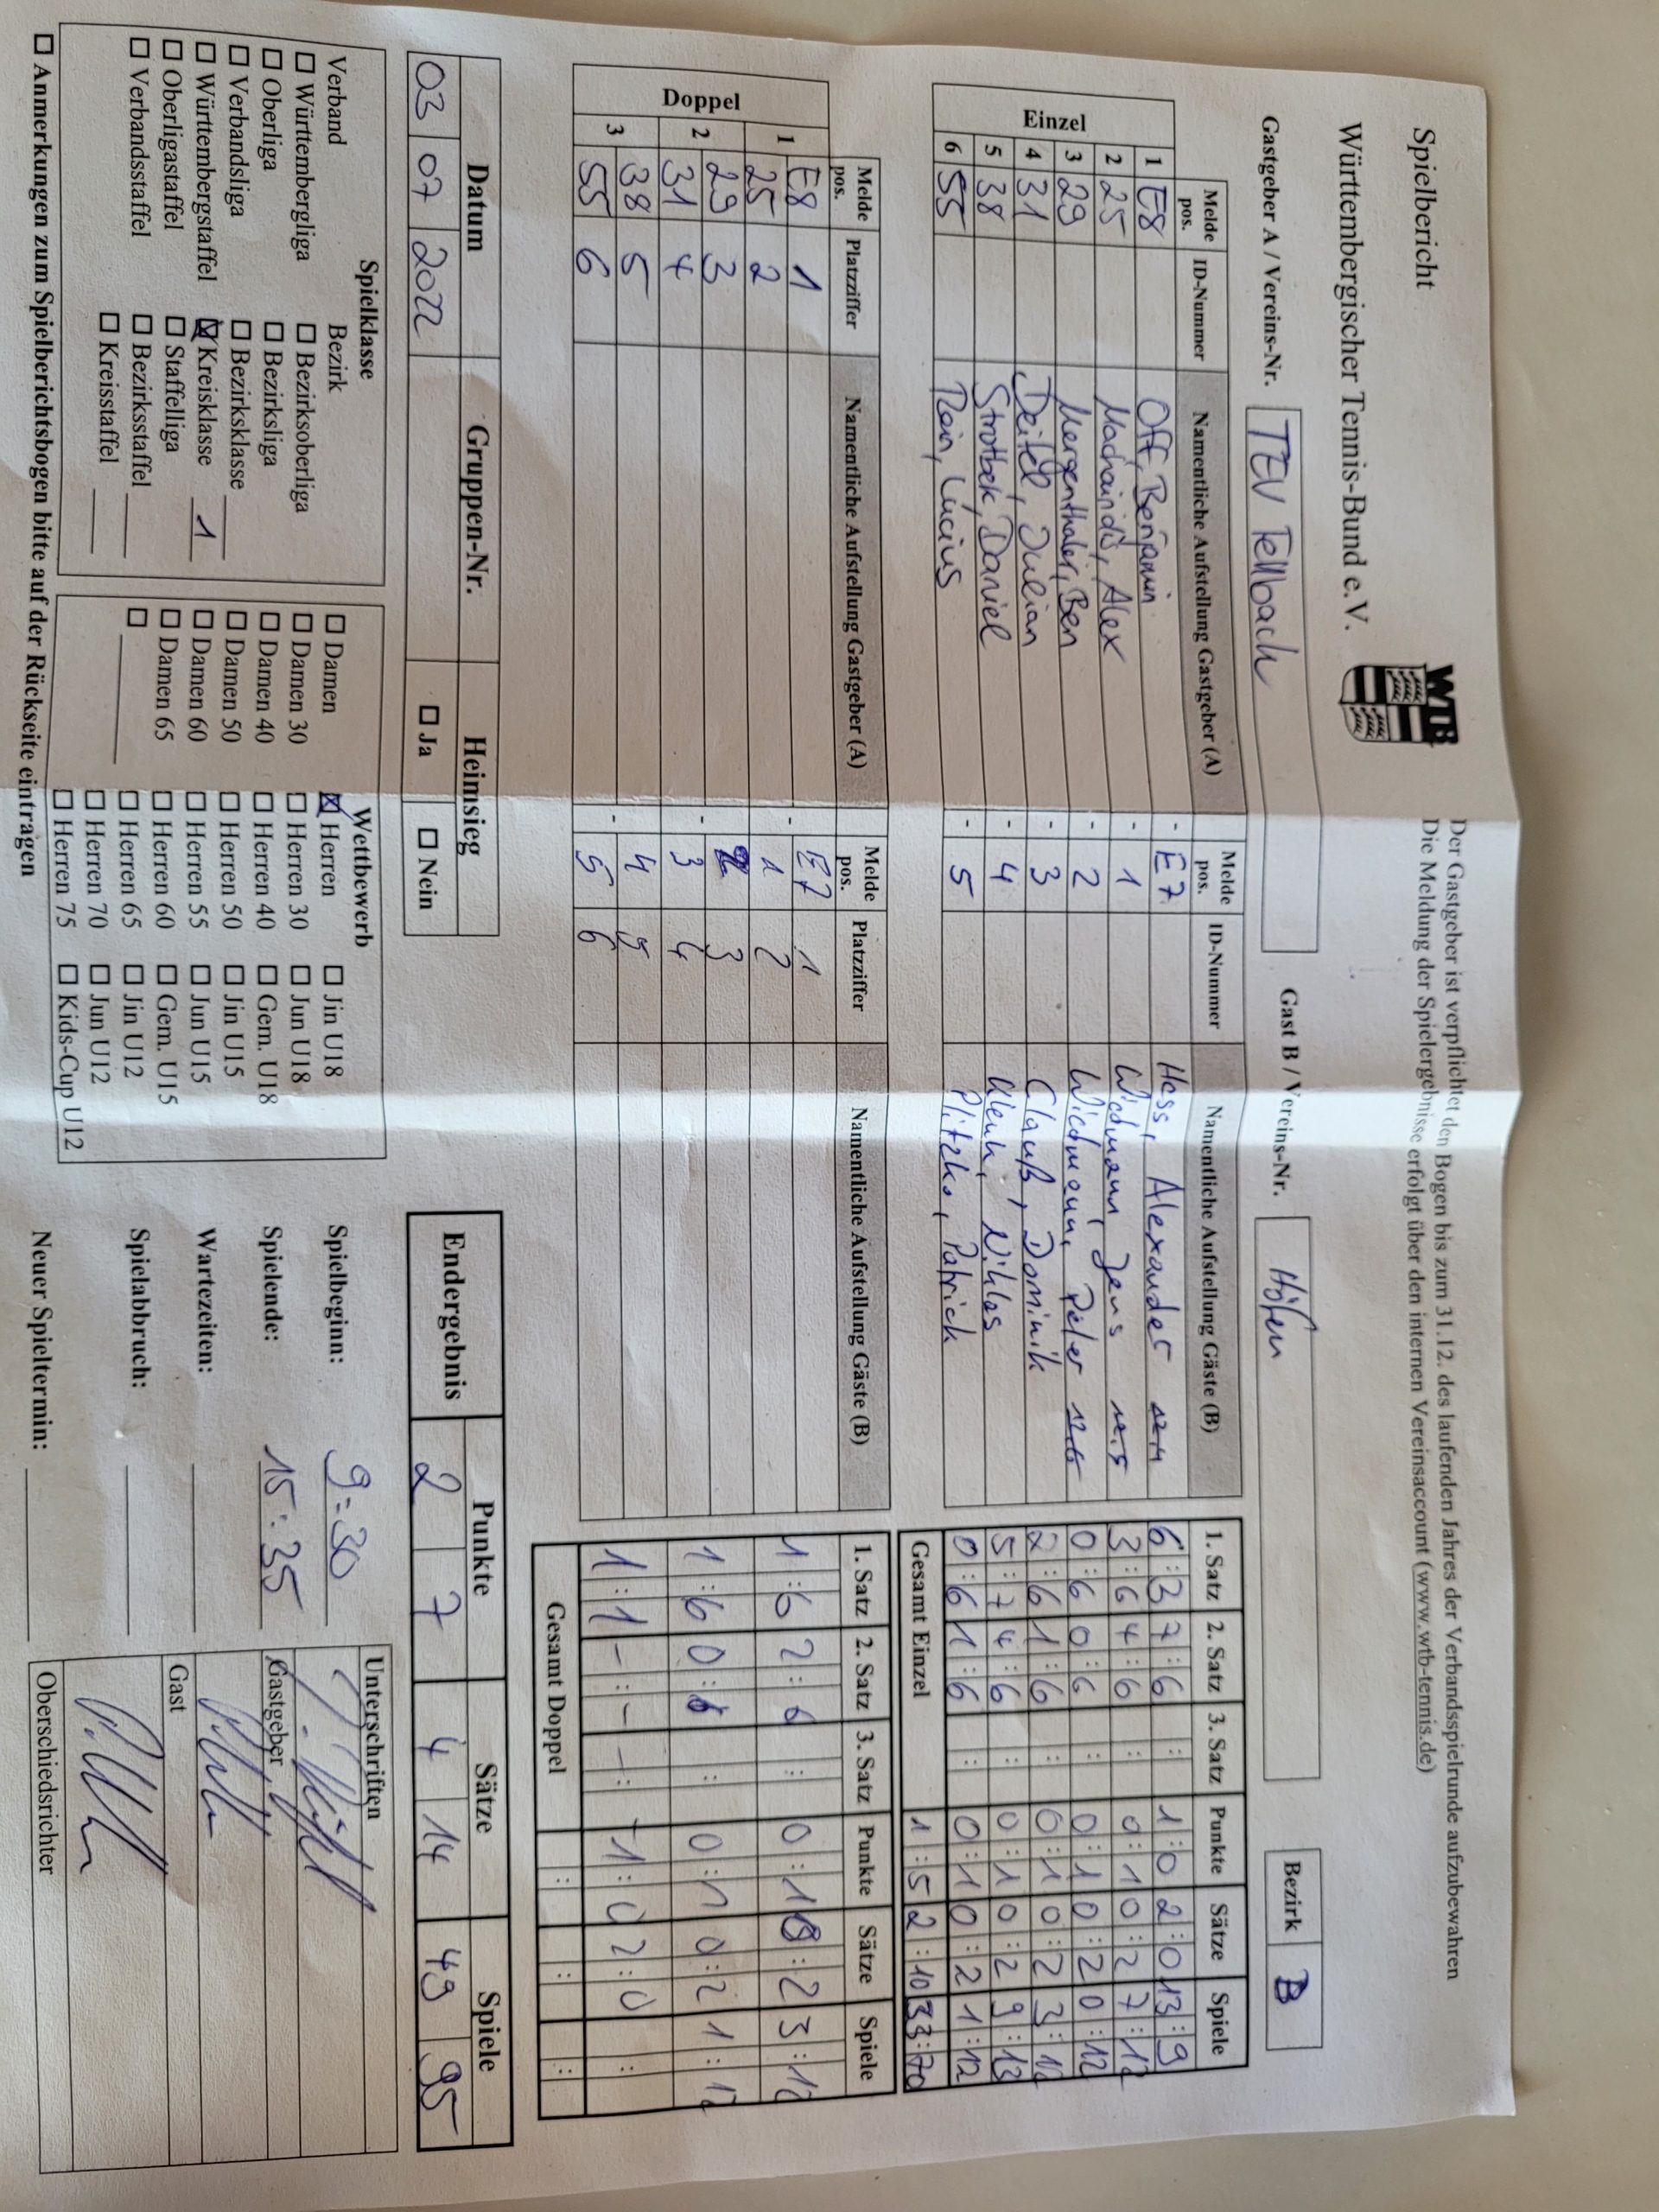 Spielbericht
Der Gastgeber ist verpflichtet den Bogen bis zum 31.12. des laufenden Jahres der Verbandsspielrunde aufzubewahren
Die Meldung der Spielergebnisse erfolgt über den internen Vereinsaccount (www.wtb-tennis.de)
Württembergischer Tennis-Bund e.V. WTB
Gastgeber A / Vereins-Nr. TEV Fellbach Gast B / Vereins-Nr. Höfen Bezirk B
Melde pos. ID-Nummer Namentliche Aufstellung Gastgeber (A) Melde pos. ID-Nummer Namentliche Aufstellung Gäste (B) 1. Satz 2. Satz 3. Satz Punkte Sätze Spiele
Einzel
1 E8 Off, Benjamin - E7 Hess, Alexander 6:3 7:6 : 1:0 2:0 13:9
2 25 Alex - 1 Wiedmann, Jens 3:6 4:6 : 0:1 0:2 7:12
3 29 Mergenthaler, Ben - 2 Wiedmann, Peter 0:6 0:6 : 0:1 0:2 0:12
4 31 Julian - 3 Clauß, Dominik 2:6 1:6 : 0:1 0:2 3:12
5 38 Strotbek, Daniel - 4 Klenk, Niklas 5:7 4:6 : 0:1 0:2 9:13
6 55 Rein, Lucius - 5 Plitzko, Patrick 0:6 1:6 : 0:1 0:2 1:12
Gesamt Einzel 1:5 2:10 33:70
Melde pos. Platzziffer Namentliche Aufstellung Gastgeber (A) Melde pos. Platzziffer Namentliche Aufstellung Gäste (B) 1. Satz 2. Satz 3. Satz Punkte Sätze Spiele
Doppel
1 E8 1 - E7 1 1:6 2:6 : 0:1 0:2 3:12
25 2 1 2
2 29 3 - 2 3 1:6 0:6 : 0:1 0:2 1:12
31 4 3 4
3 38 5 - 4 5 1:1 -:- -: 1:0 2:0 :
55 6 5 6
Gesamt Doppel : : :
Datum Gruppen-Nr. Heimsieg
03 07 2022 Ja Nein
Endergebnis Punkte Sätze Spiele
2 7 4 14 49 95
Spielklasse
Verband Bezirk
Württembergliga Bezirksoberliga
Oberliga Bezirksliga
Verbandsliga Bezirksklasse
Württembergstaffel Kreisklasse 1
Oberligastaffel Staffelliga
Verbandsstaffel Bezirksstaffel
Kreisstaffel
Wettbewerb
Damen Herren Jin U18
Damen 30 Herren 30 Jun U18
Damen 40 Herren 40 Gem. U18
Damen 50 Herren 50 Jin U15
Damen 60 Herren 55 Jun U15
Damen 65 Herren 60 Gem. U15
Herren 65 Jin U12
Herren 70 Jun U12
Herren 75 Kids-Cup U12
Spielbeginn: 9:30
Spielende: 15:35
Wartezeiten:
Spielabbruch:
Neuer Spieltermin:
Unterschriften
Gastgeber
Gast
Oberschiedsrichter
Anmerkungen zum Spielberichtsbogen bitte auf der Rückseite eintragen